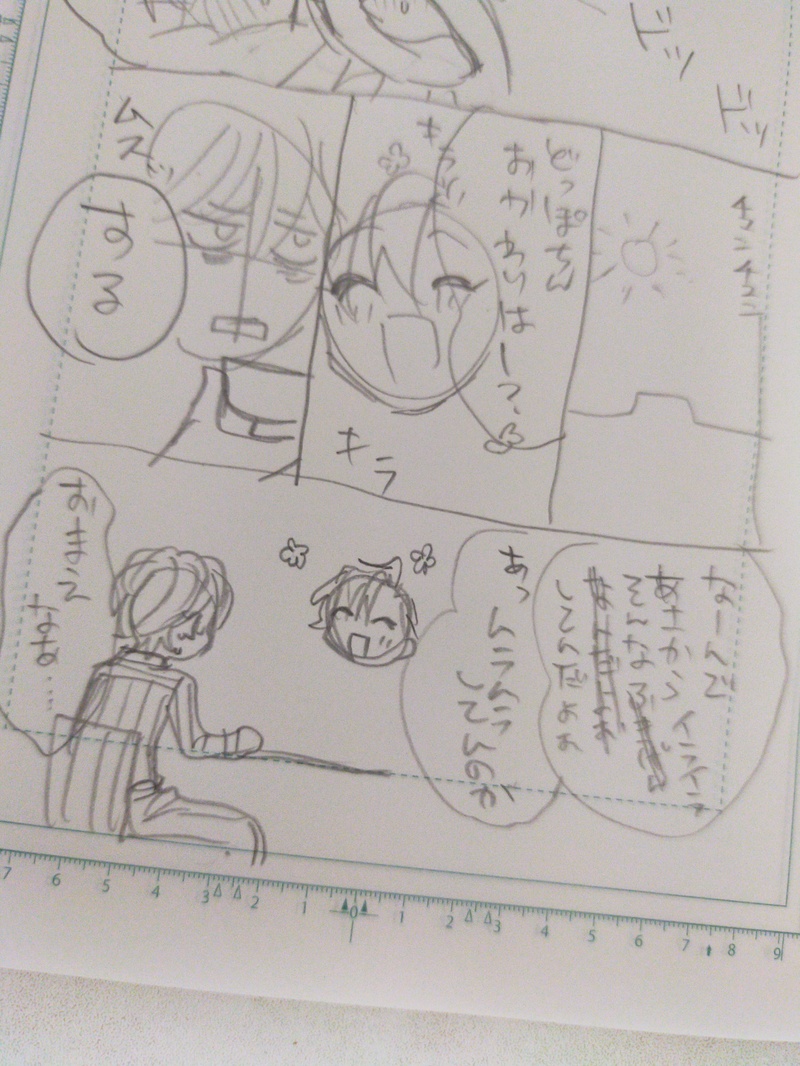 ドッ
ドッ
チュンチュン
どっぽちん
おかわりはー?
キラ
キラ
ムス
する
なーんで
あさから イライラ
そんな
してんだよぉ
あっ ムラムラ
してんのか
おまえ
なぁ……
7 6 5 4 3 2 1 0 1 2 3 4 5 6 7 8 9